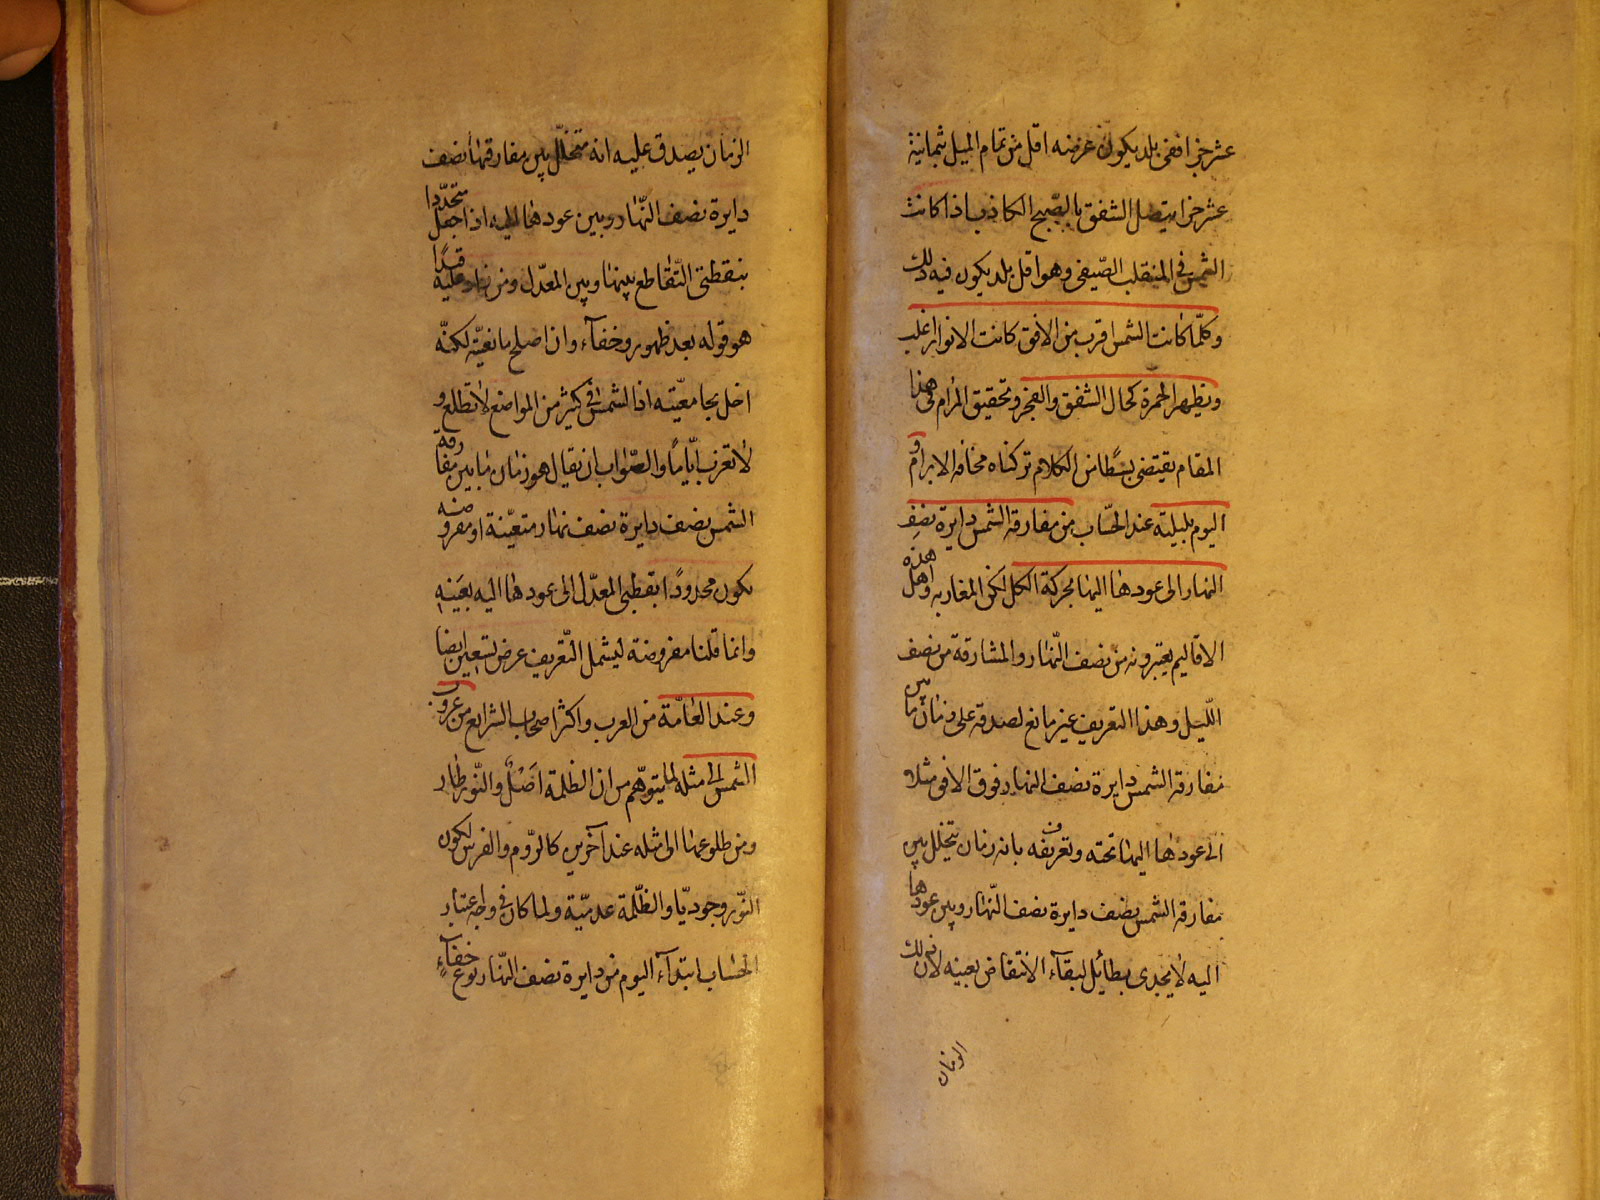 عشر جزا ففى بلد يكون عرضه اقل من تمام الميل بثمانية
عشر جزا يتصل الشفق بالصّبح الكاذب اذا كانت
الشمس فى المنقلب الصّيفى وهو اقل بلد يكون فيه ذلك
وكلّما كانت الشمس اقرب من الافق كانت الانوار اغلب
ويظهر الحمرة كحال الشفق والفجر وتحقيق المرام فى هذا
المقام يقتضى بسطا من الكلام تركناه مخافة الابرام و
اليوم بليلته عند الحسّاب من مفارقة الشمس دايرة نصف
النهار الى عودها اليها بحركة الكل لكن المغاربة واهل هذه
الاقاليم يعتبرونه من نصف النّهار والمشارقة من نصف
اللّيل وهذا التعريف غير مانع لصدقه على زمان ما بين
مفارقة الشمس دايرة نصف النهار فوق الافق مثلا
الى عودها اليها تحته وتعريفه بانه زمان يتخلل بين
مفارقة الشمس بنصف دايرة نصف النّهار وبين عودها
اليه لا يجدى بطائل لبقآء الانتقاض بعينه لان ذلك
الزمان
الزمان يصدق عليه انه متخلّل بين مفارقتها نصف
دايرة نصف النّهار وبين عودها اليه اذا جعل متحدّدا
بنقطتى التّقاطع بينها وبين المعدّل ومن زاد عليه قيدًا
هو قوله بعد ظهور وخفآء وان اصلح مانعيّته لكنّه
اخل بجامعيّته اذ الشمس فى كثير من المواضع لا تطلع و
لا تغرب ايّاماً والصّواب ان يقال هو زمان ما بين مفارقة
الشمس نصف دايرة نصف نهار متعيّنة او مفروضة
يكون محدودًا بقطبى المعدّل الى عودها اليه بعينه
وانما قلنا مفروضة ليشمل التّعريف عرض تسعين ايضا
وعند العامّة من العرب واكثر اصحاب الشرايع من غروب
الشمس الى مثله لما يتوهّم من ان الظلمة اصل والنّور طار
ومن طلوعها الى مثله عند آخرين كالرّوم والفرس لكون
النّور وجوديّا والظّلمة عدميّة ولما كان فى واعتبار
الحساب ابتدآء اليوم من دايرة نصف النّهار نوع خفآء